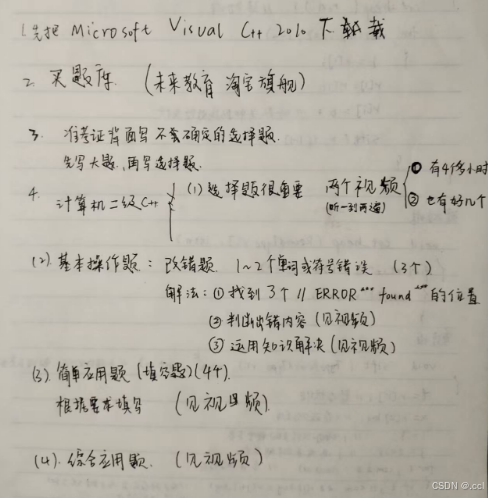 1.先把 Microsoft Visual C++ 2010 下载
2. 买题库. (未来教育 淘宝旗舰)
3. 准考证背面写不会确定的选择题.
先写大题,再写选择题.
4. 计算机二级C++
(1) 选择题很重要 两个视频
(听一到两遍)
① 有4个多小时
② 也有好几个
(2). 基本操作题: 改错题. 1~2个单词或符号错误. (3个)
解法: ① 找到 3个 // ERROR *** found *** 的位置
② 判断出错内容 (见视频)
③ 运用知识解决 (见视频)
(3). 简单应用题 (填空题) (4个).
根据要求填写 (见视频).
(4). 综合应用题. (见视频)
CSDN @.ccl